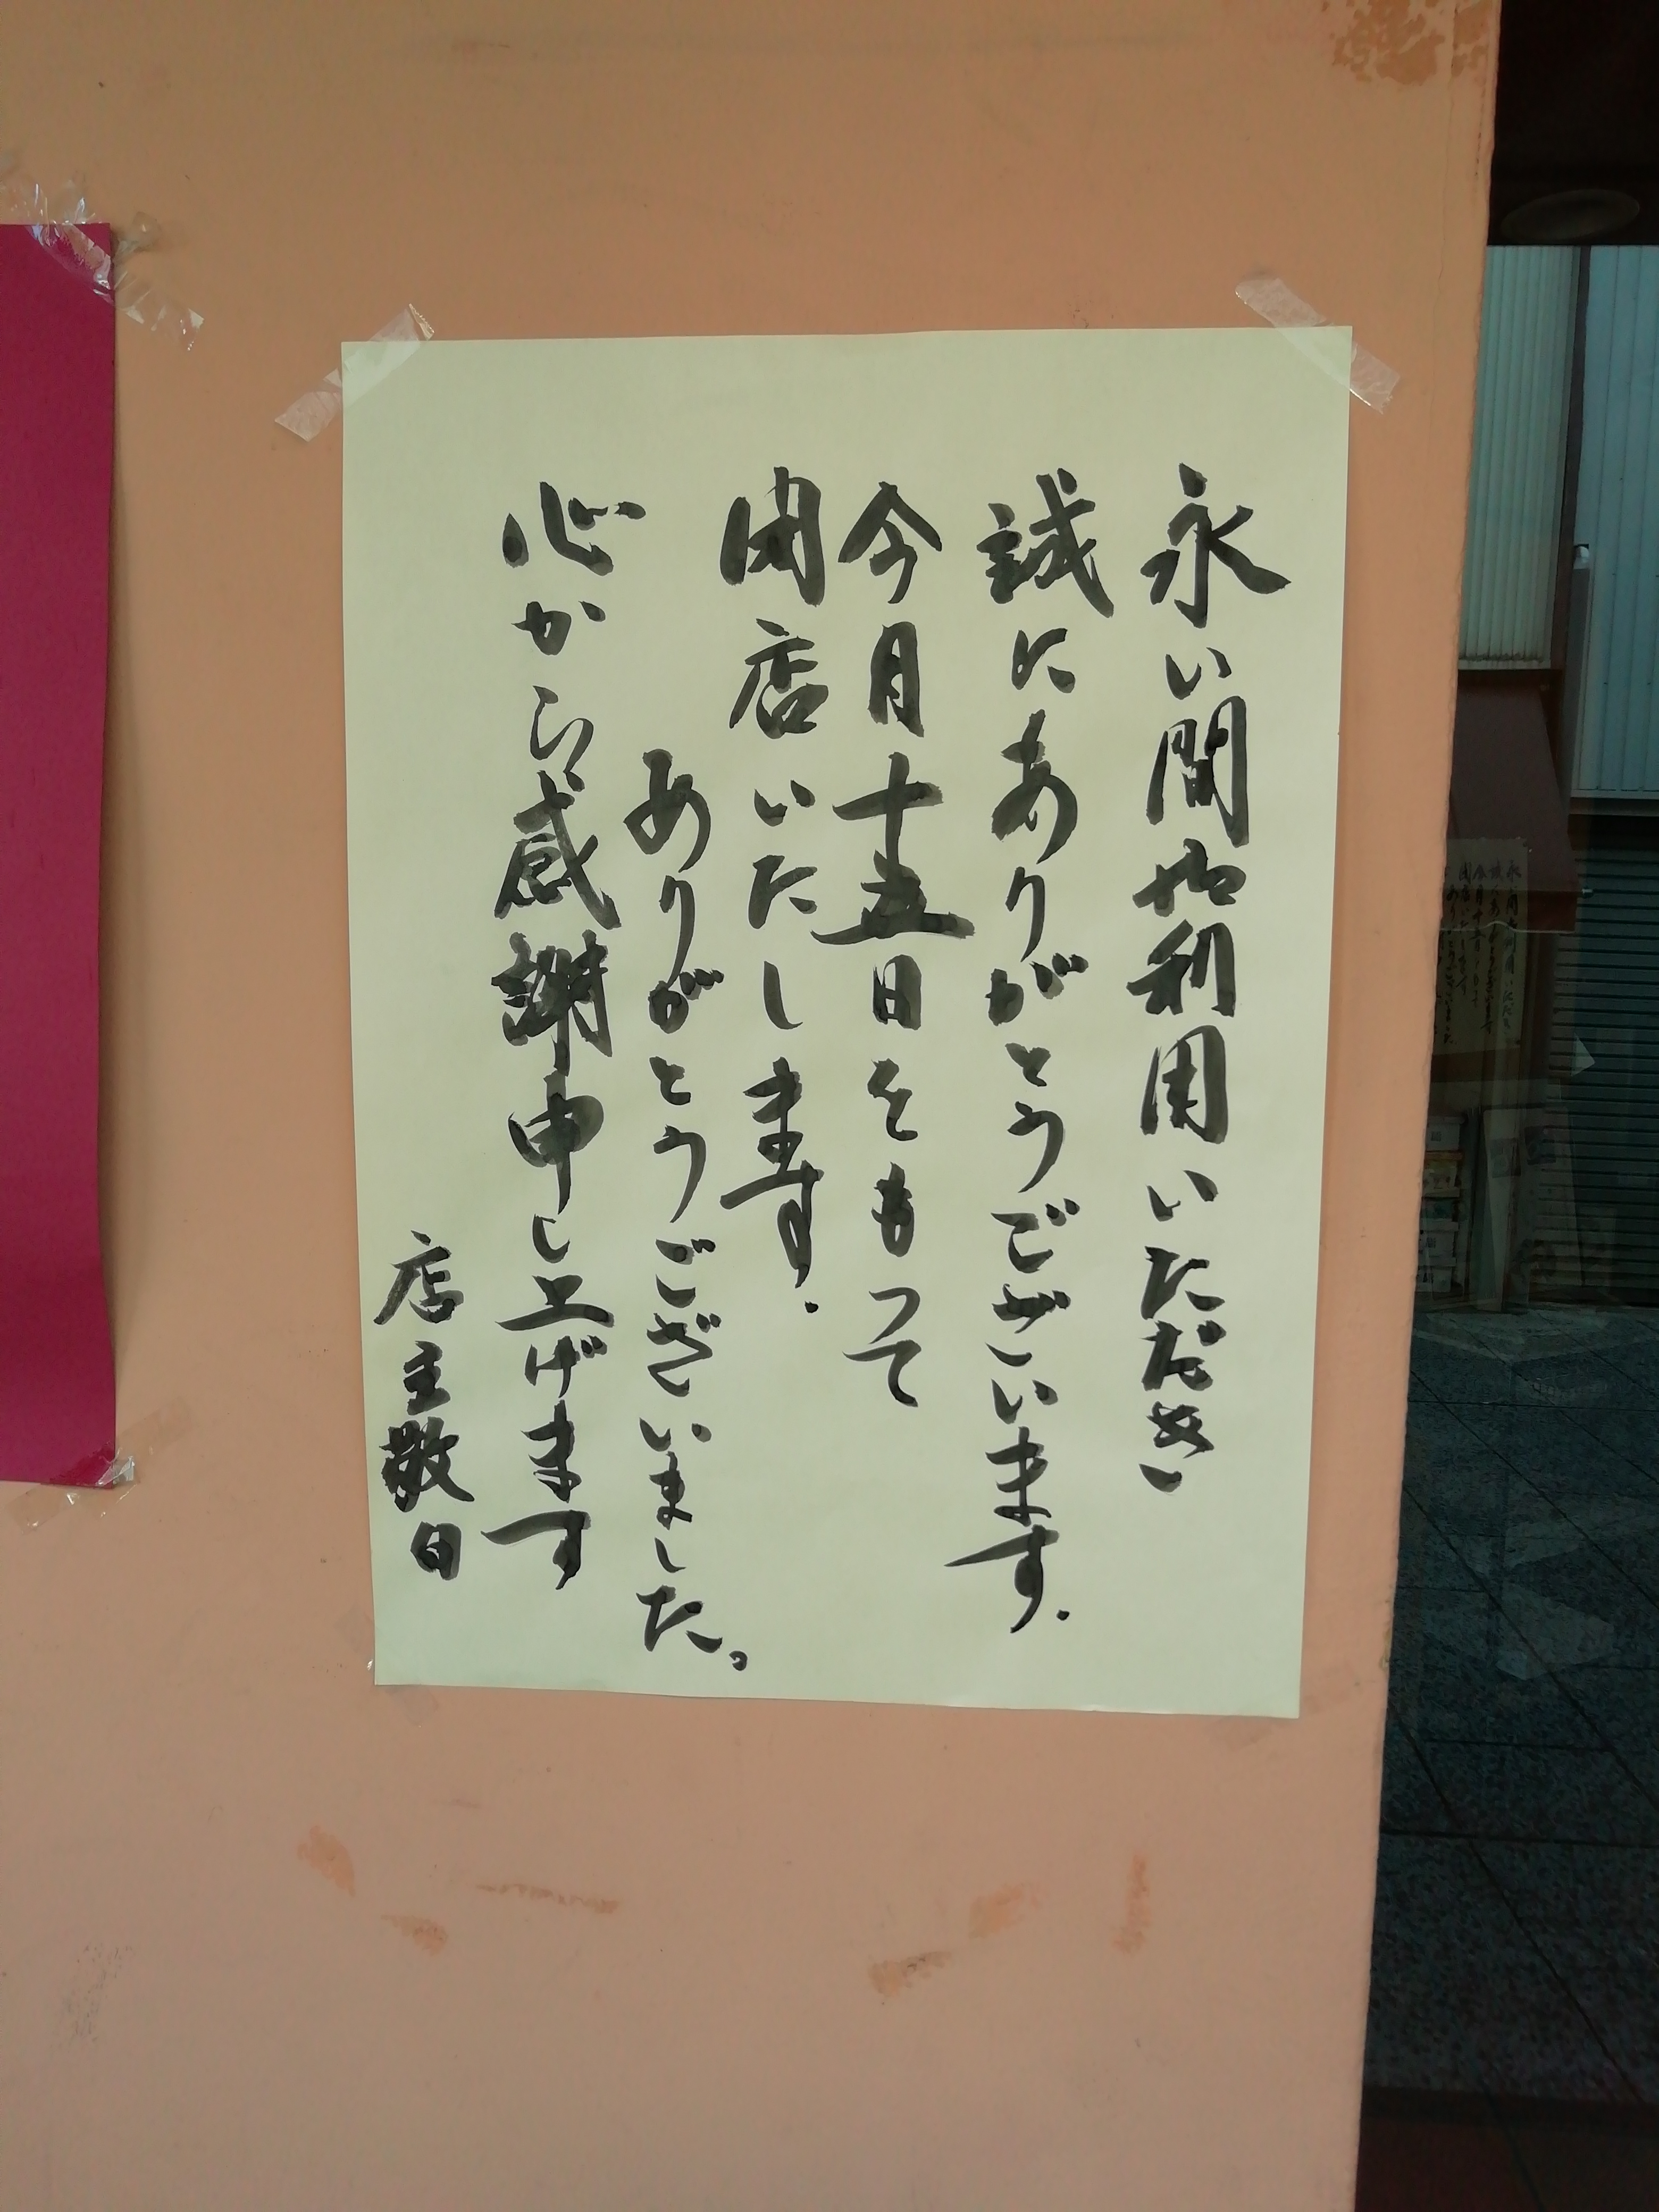 永い間御利用いただき
誠にありがとうございます.
今月十五日をもって
閉店いたします.
ありがとうございました。
心から感謝申し上げます
店主敬白